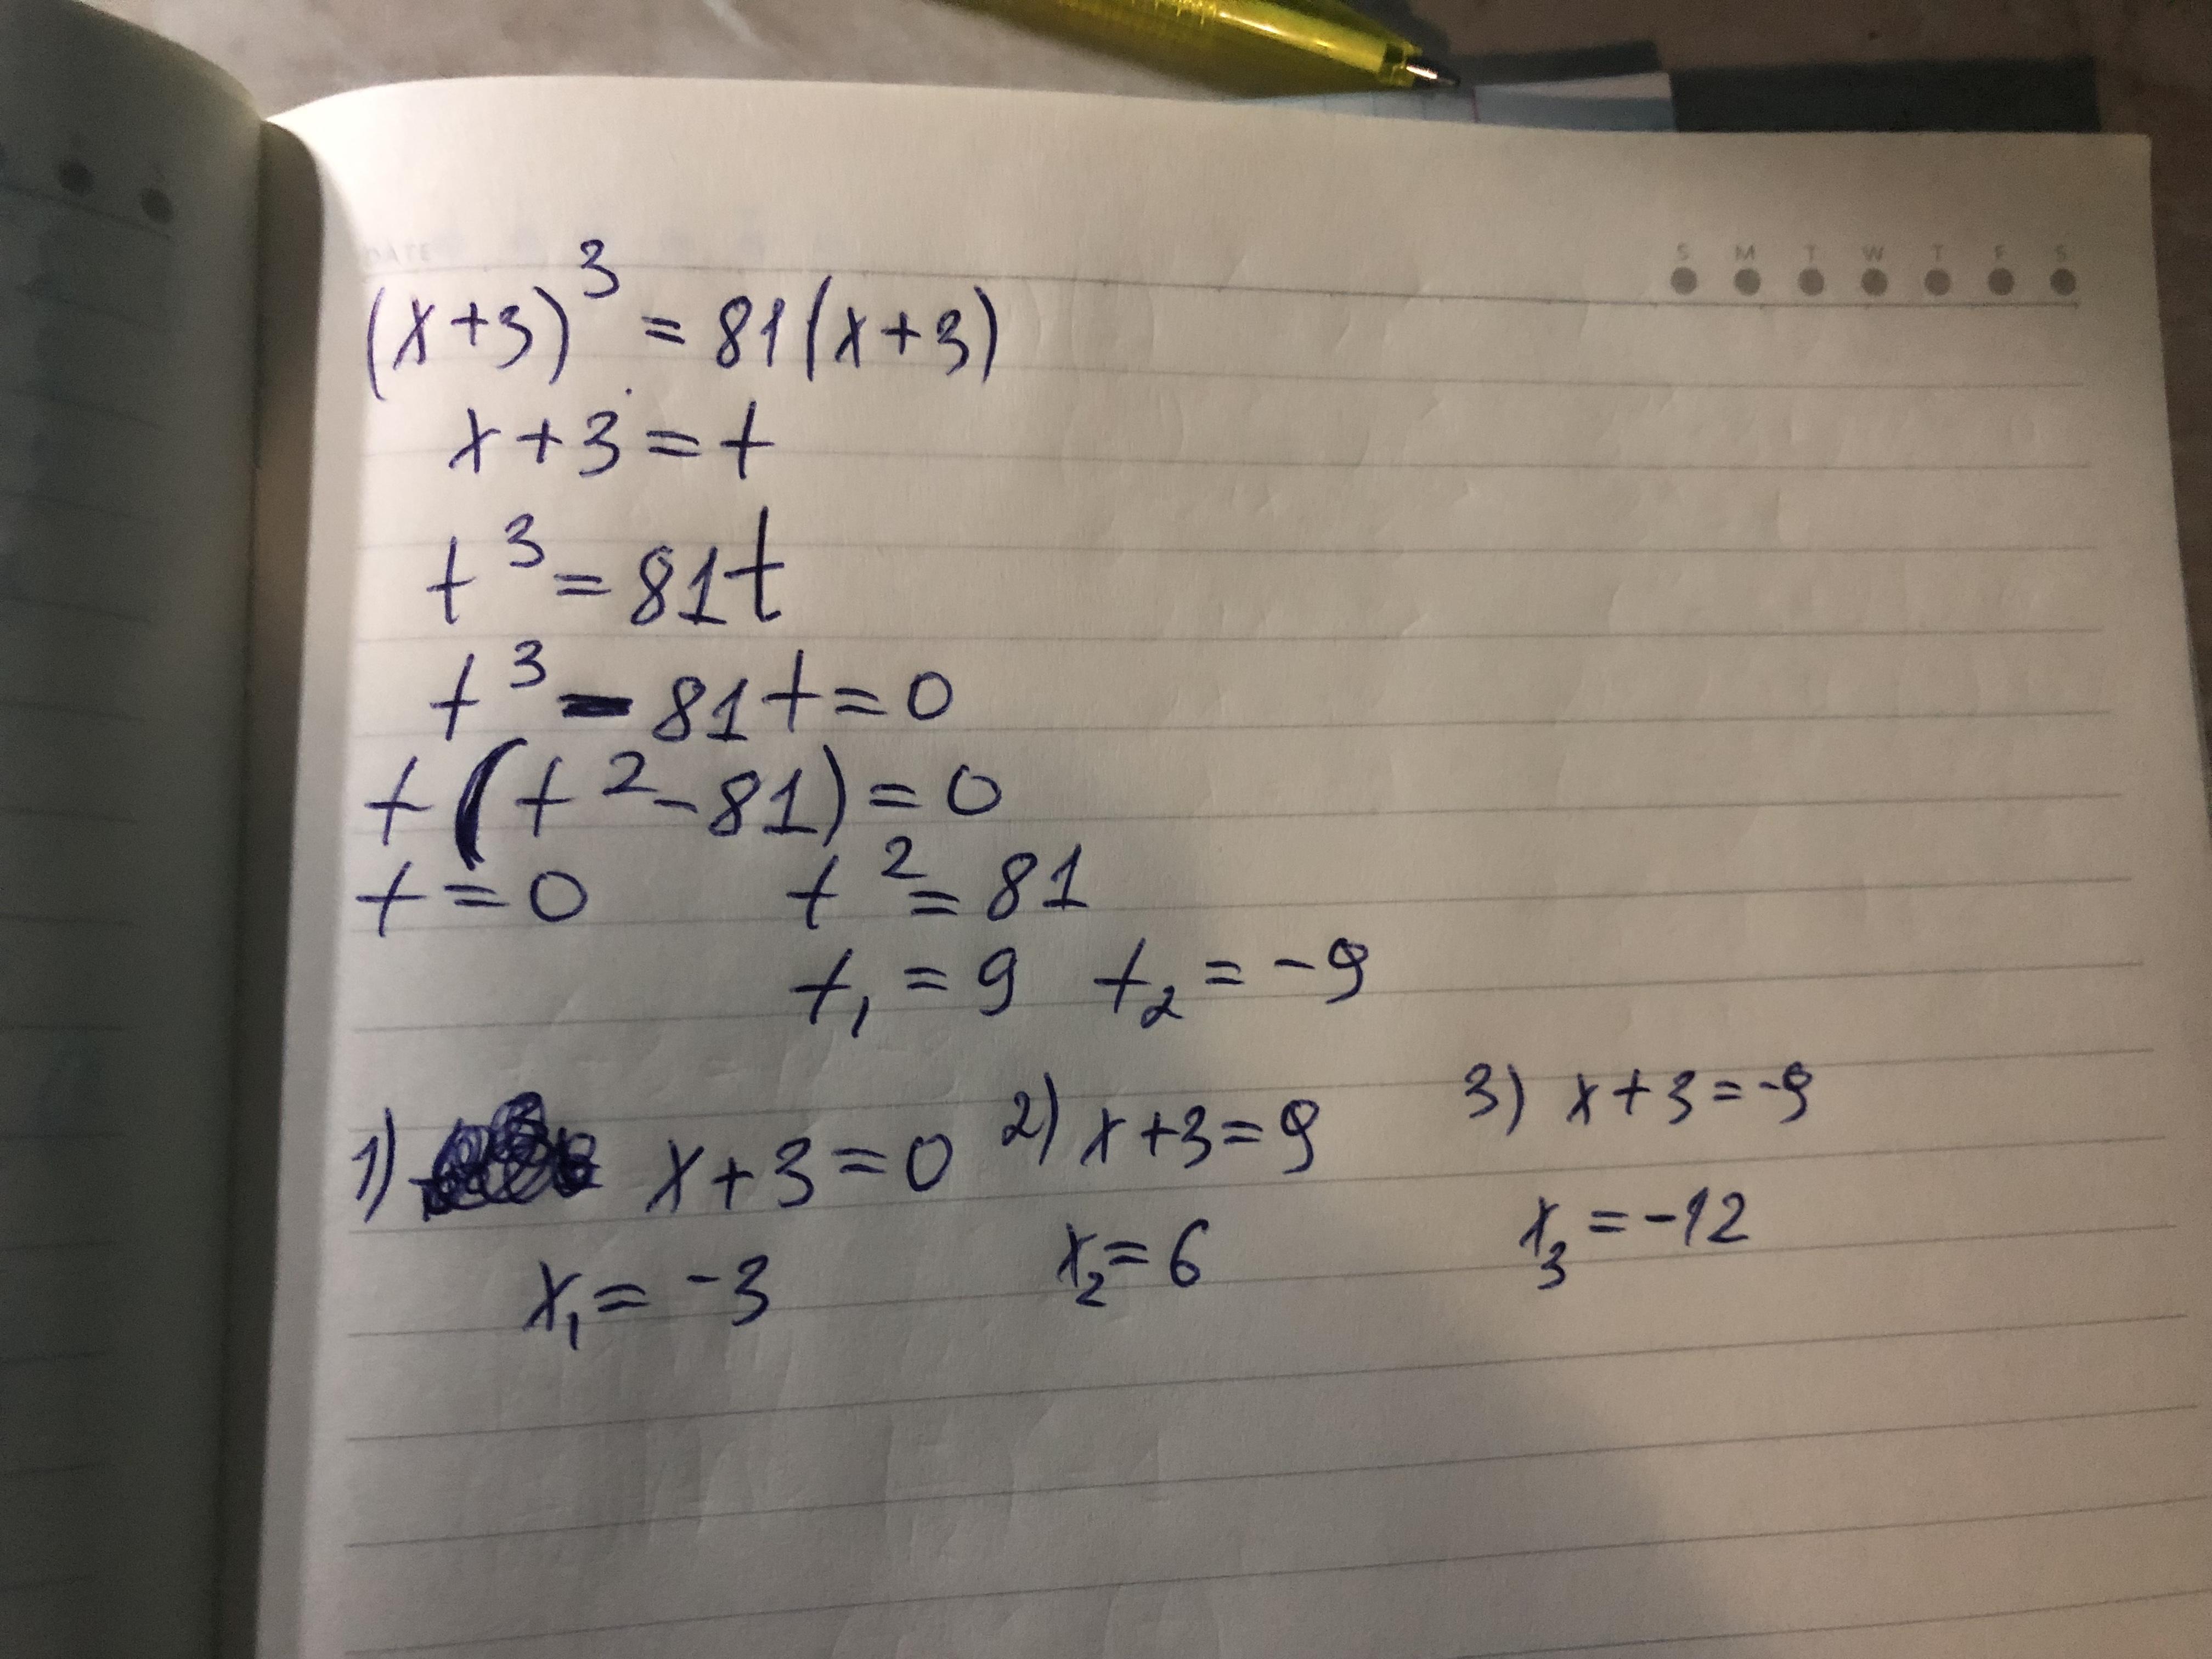 DATE
S M T W T F S
(x+3)³ = 81(x+3)
x+3=t
t³=81t
t³-81t=0
t(t²-81)=0
t=0 t²=81
t₁=9 t₂=-9
1) x+3=0 2) x+3=9 3) x+3=-9
x₁=-3 x₂=6 x₃=-12